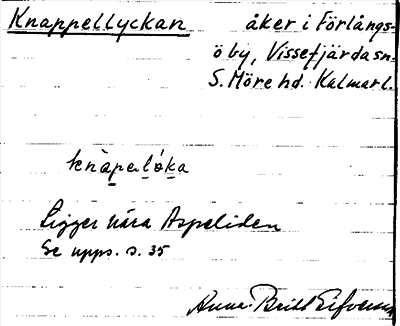 Knappellyckan åker i Förlångs-
ö by, Vissefjärda sn.
S. Möre hd. Kalmar l.
knàperlóka
Ligger nära Aspeliden
Se upps. s. 35
Anna-Britt